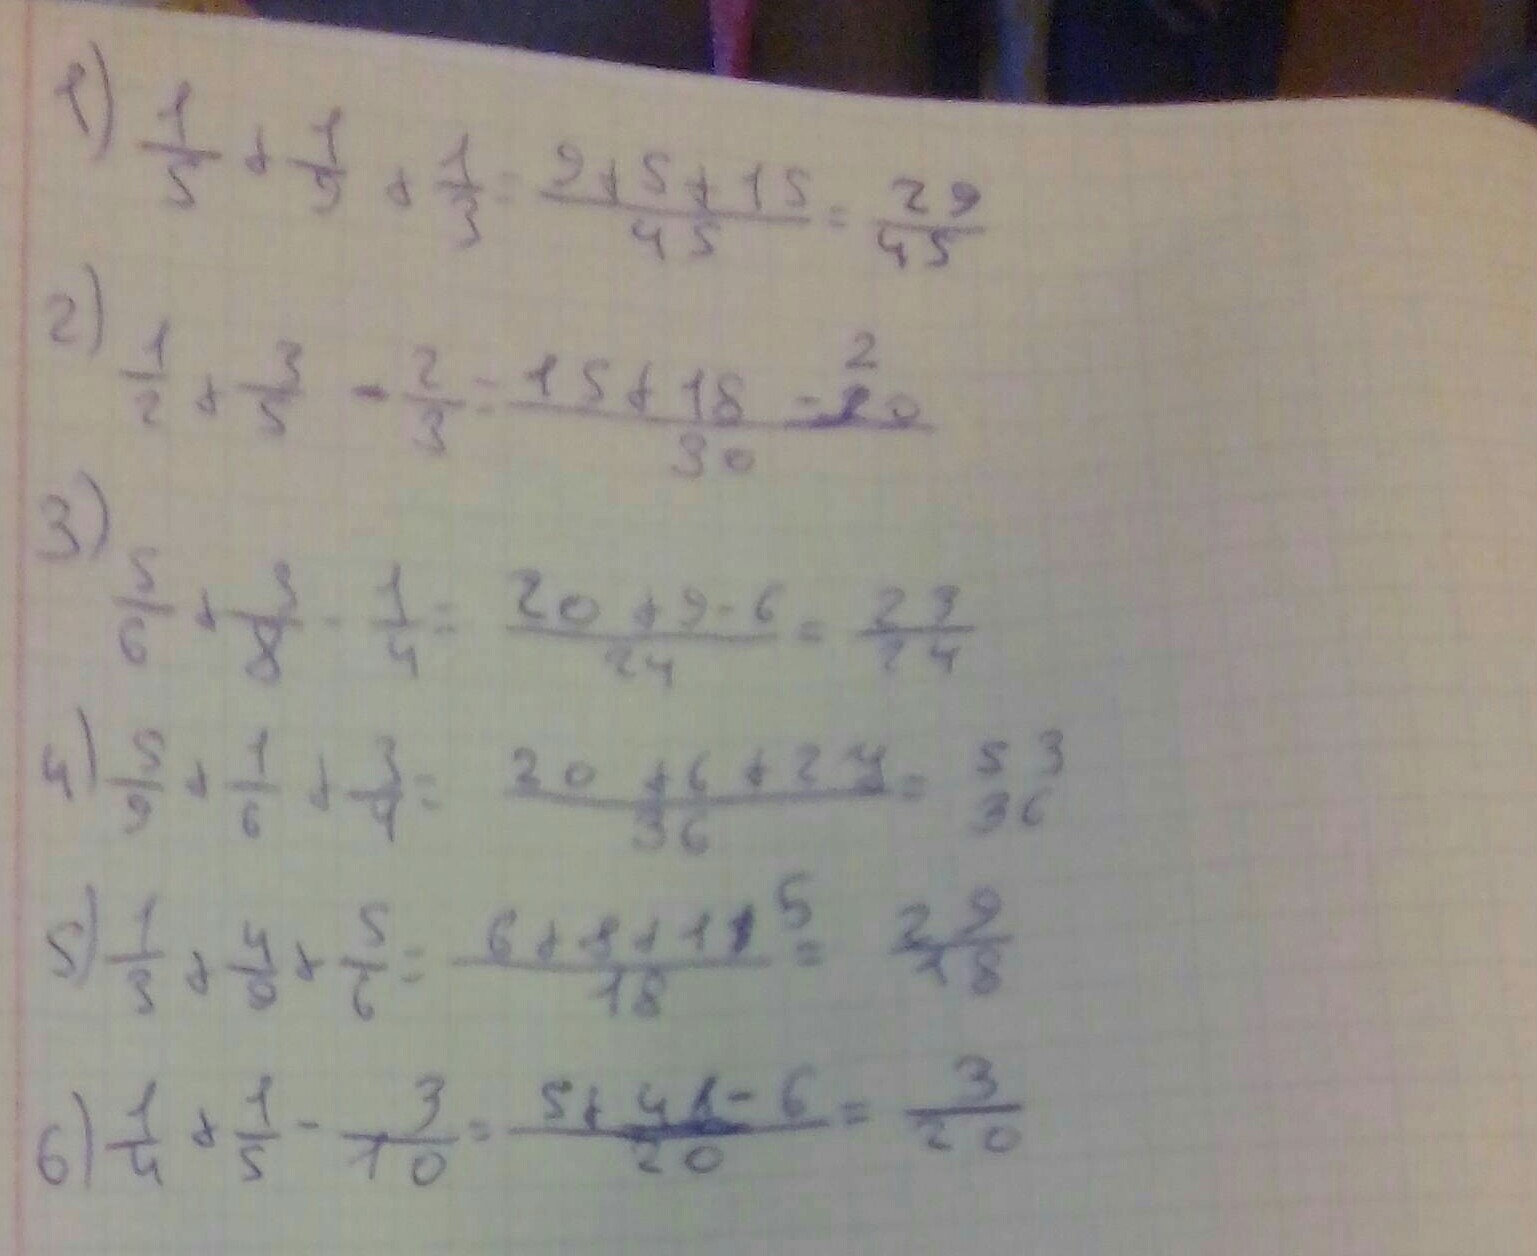 1) 1/5 + 1/9 + 1/3 = (9+5+15)/45 = 29/45
2) 1/2 + 3/5 - 2/3 = (15+18-20)/30
3) 5/6 + 3/8 - 1/4 = (20+9-6)/24 = 23/24
4) 5/9 + 1/6 + 3/4 = (20+6+27)/36 = 53 36
5) 1/3 + 4/9 + 5/6 = (6+8+15)/18 = 29/18
6) 1/4 + 1/5 - 3/10 = (5+4-6)/20 = 3/20